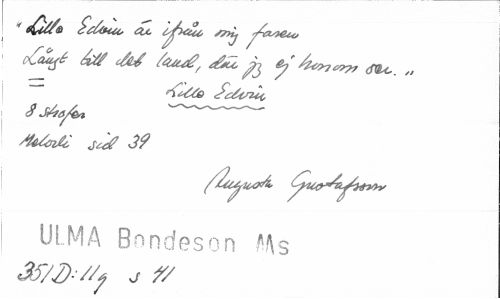 "Lilla Edvin är ifrån mig faren
Långt till det land, där jg ej honom ser."
Lilla Edvin
8 strofer
Melodi sid 39
Augusta Gustafsson
ULMA Bondeson Ms
351D:11g s 41